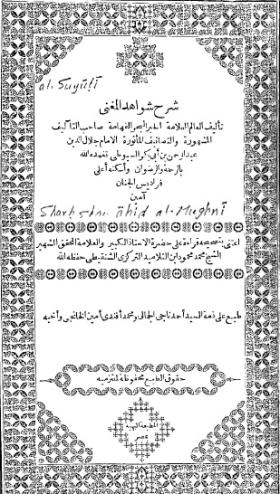 al-Suyūṭī
شرح شواهد المغنى
تأليف العالم العلامة الحبر البحر الفهامة صاحب التآليف
المشهورة والتصانيف المأثورة الامام جلال الدين
عبد الرحمن بن أبى بكر السيوطى تغمده الله
بالرحمة والرضوان وأسكنه أعلى
فراديس الجنان
آمين
Sharḥ shawāhid al-Mughnī
اعتنى بتصحيحه قراءة على حضرة الاستاذ الكبير والعلامة المحقق الشهير
الشيخ محمد محمود ابن التلاميد التركزى الشنقيطى حفظه الله
طبع على ذمة السيد أحمد ناجى الجمالى ومحمد أفندى أمين الخانجى وأخيه
حقوق الطبع محفوظة لملتزميه
مصر